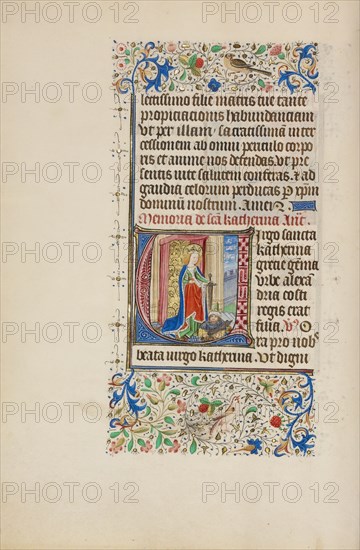 PHOTO 12 PHOTO 12 PHOTO 12
lectissimo filie matris tue tante
propiciacionis habundanciam
Vt per illam sacratissimā inter
cessionem ab omni periculo corpo
ris et anime nos defendas. Vt pre
sentis vite salutem conferas. & ad
gaudia celorum perducas P xpm
dominum nostrum. Amen
Memoria de scā katherina Ant.
Virgo sancta
katherina
grecie gēma
Vrbe alexan
dria costi
regis erat
filia. Vs. O
ra pro nob
beata virgo katherina. Vt digni